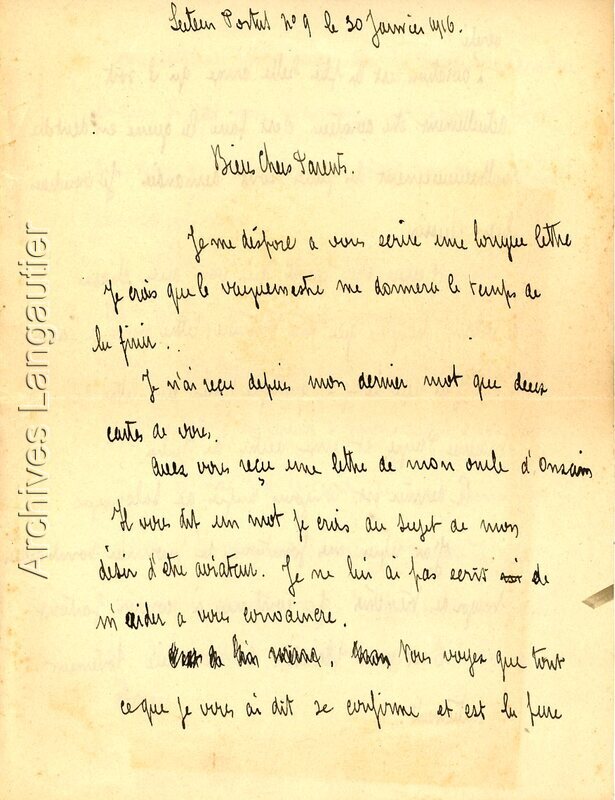 Secteur Postal nº 9 le 30 Janvier 1916.
Biens Chers Parents.
Je me dispose a vous ecrire une longue lettre
Je crois que le vaguemestre me donnera le temps de
la finir.
Je n'ai reçu depuis mon dernier mot que deux
cartes de vous.
Avez vous reçu une lettre de mon oncle d'Onzain
Il vous dit un mot je crois au sujet de mon
désir d'etre aviateur. Je ne lui ai pas ecrit de
m'aider a vous convaincre.
Vous voyez que tout
ce que je vous ai dit se confirme et est la pure
Archives Langautier